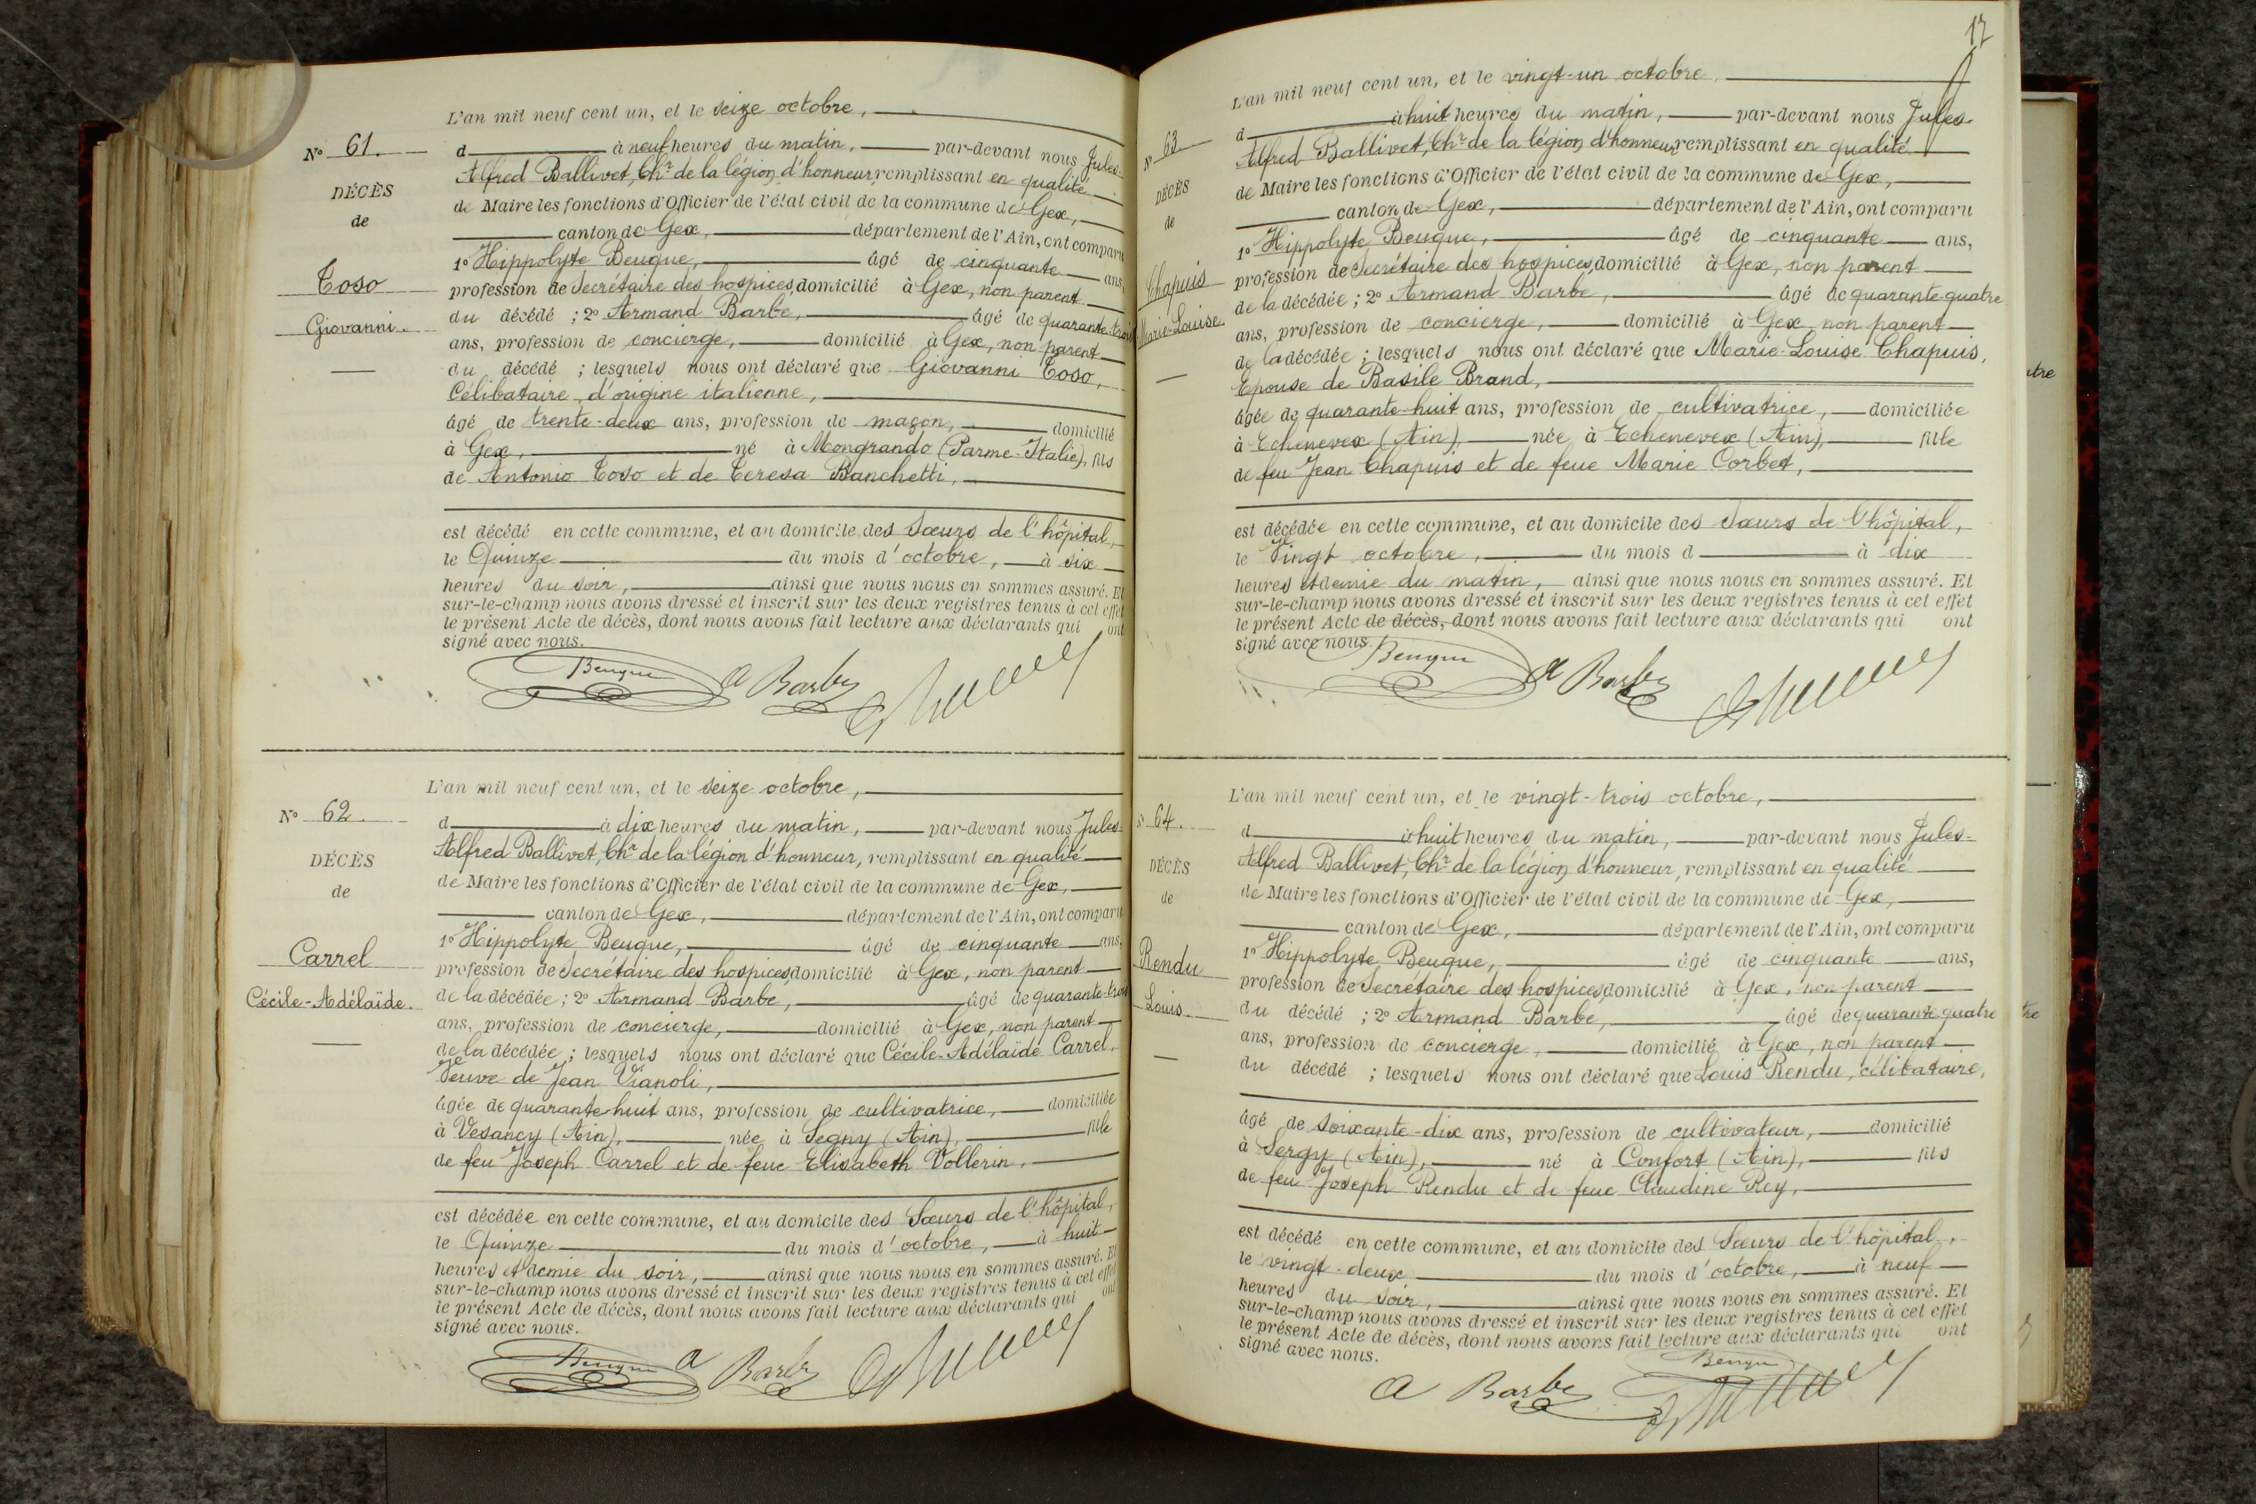 L'an mil neuf cent un, et le seize octobre,
No 61.
d à neuf heures du matin, par-devant nous Jules-
Alfred Ballivet, Chr de la légion d'honneur, remplissant en qualité
DÉCÈS
de Maire les fonctions d'Officier de l'état civil de la commune de Gex,
de
canton de Gex, département de l'Ain, ont comparu
1o Hippolyte Beuque, âgé de cinquante ans,
Toso
profession de Secrétaire des hospices, domicilié à Gex, non parent
Giovanni.
du décédé ; 2o Armand Barbe, âgé de quarante-trois
ans, profession de concierge, domicilié à Gex, non parent
du décédé ; lesquels nous ont déclaré que Giovanni Toso,
Célibataire, d'origine italienne,
âgé de trente-deux ans, profession de maçon, domicilié
à Gex, né à Mongrando (Parme-Italie), fils
de Antonio Toso et de Teresa Banchetti,
est décédé en cette commune, et au domicile des Sœurs de l'hôpital,
le Quinze du mois d'octobre, à six
heures du soir, ainsi que nous nous en sommes assuré. Et
sur-le-champ nous avons dressé et inscrit sur les deux registres tenus à cet effet
le présent Acte de décès, dont nous avons fait lecture aux déclarants qui ont
signé avec nous.
Beuque A Barbe
L'an mil neuf cent un, et le seize octobre,
No 62.
d à dix heures du matin, par-devant nous Jules-
Alfred Ballivet, Chr de la légion d'honneur, remplissant en qualité
DÉCÈS
de Maire les fonctions d'Officier de l'état civil de la commune de Gex,
de
canton de Gex, département de l'Ain, ont comparu
1o Hippolyte Beuque, âgé de cinquante ans,
Carrel
profession de Secrétaire des hospices, domicilié à Gex, non parent
Cécile-Adélaïde.
de la décédée ; 2o Armand Barbe, âgé de quarante-trois
ans, profession de concierge, domicilié à Gex, non parent
de la décédée ; lesquels nous ont déclaré que Cécile-Adélaïde Carrel,
Veuve de Jean Vianoli,
âgée de quarante-huit ans, profession de cultivatrice, domiciliée
à Vesancy (Ain), née à Segny (Ain), fille
de feu Joseph Carrel et de feue Elisabeth Vollerin,
est décédée en cette commune, et au domicile des Sœurs de l'hôpital,
le Quinze du mois d'octobre, à huit
heures et demie du soir, ainsi que nous nous en sommes assuré. Et
sur-le-champ nous avons dressé et inscrit sur les deux registres tenus à cet effet
le présent Acte de décès, dont nous avons fait lecture aux déclarants qui ont
signé avec nous.
Beuque A Barbe
17
L'an mil neuf cent un, et le vingt-un octobre
No 63.
d à huit heures du matin, par-devant nous Jules-
Alfred Ballivet, Chr de la légion d'honneur, remplissant en qualité
DÉCÈS
de Maire les fonctions d'Officier de l'état civil de la commune de Gex,
de
canton de Gex, département de l'Ain, ont comparu
1o Hippolyte Beuque, âgé de cinquante ans,
Chapuis
profession de Secrétaire des hospices, domicilié à Gex, non parent
Marie-Louise.
de la décédée ; 2o Armand Barbe, âgé de quarante-quatre
ans, profession de concierge, domicilié à Gex, non parent
de la décédée ; lesquels nous ont déclaré que Marie-Louise Chapuis,
Epouse de Basile Brand,
âgée de quarante-huit ans, profession de cultivatrice, domiciliée
à Echenevex (Ain), née à Echenevex (Ain), fille
de feu Jean Chapuis et de feue Marie Corbet,
est décédée en cette commune, et au domicile des Sœurs de l'hôpital,
le Vingt octobre, du mois d à dix
heures et demie du matin, ainsi que nous nous en sommes assuré. Et
sur-le-champ nous avons dressé et inscrit sur les deux registres tenus à cet effet
le présent Acte de décès, dont nous avons fait lecture aux déclarants qui ont
signé avec nous.
Beuque A Barbe
L'an mil neuf cent un, et le vingt-trois octobre,
No 64.
d à huit heures du matin, par-devant nous Jules-
Alfred Ballivet, Chr de la légion d'honneur, remplissant en qualité
DÉCÈS
de Maire les fonctions d'Officier de l'état civil de la commune de Gex,
de
canton de Gex, département de l'Ain, ont comparu
1o Hippolyte Beuque, âgé de cinquante ans,
Rendu
profession de Secrétaire des hospices, domicilié à Gex, non parent
Louis.
du décédé ; 2o Armand Barbe, âgé de quarante-quatre
ans, profession de concierge, domicilié à Gex, non parent
du décédé ; lesquels nous ont déclaré que Louis Rendu, célibataire,
âgé de soixante-dix ans, profession de cultivateur, domicilié
à Sergy (Ain), né à Confort (Ain), fils
de feu Joseph Rendu et de feue Claudine Rey,
est décédé en cette commune, et au domicile des Sœurs de l'hôpital,
le vingt-deux du mois d'octobre, à neuf
heures du soir, ainsi que nous nous en sommes assuré. Et
sur-le-champ nous avons dressé et inscrit sur les deux registres tenus à cet effet
le présent Acte de décès, dont nous avons fait lecture aux déclarants qui ont
signé avec nous.
Beuque
A Barbe